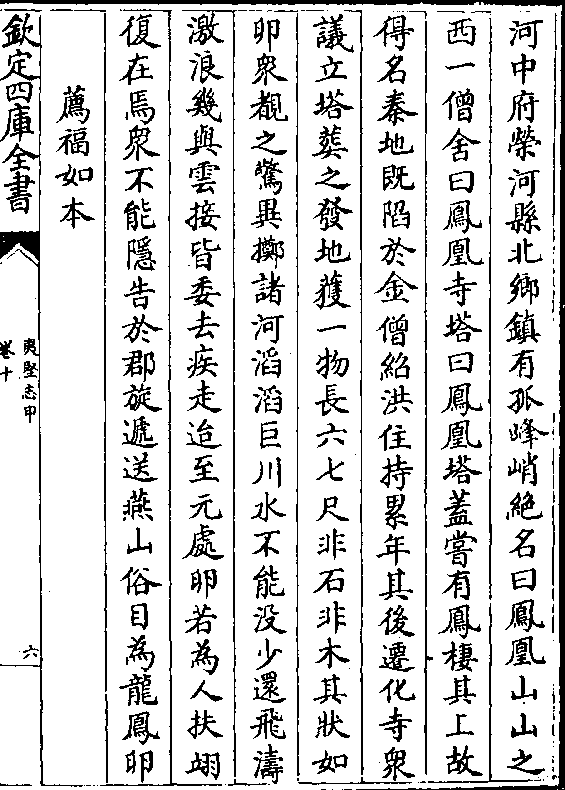 河中府榮河縣北鄉鎮有孤峰峭絶名曰鳳凰山山之
西一僧舍曰鳳凰寺塔曰鳳凰塔蓋嘗有鳳棲其上故
得名秦地既陷於金僧紹洪住持累年其後遷化寺衆
議立塔葬之發地獲一物長六七尺非石非木其狀如
卵衆覩之驚異擲諸河滔滔巨川水不能没少還飛濤
激浪幾與雲接皆委去疾走迨至元處卵若為人扶翊
復在焉衆不能隱告於郡旋遞送燕山俗目為龍鳳卵
薦福如本
欽定四庫全書
夷堅志甲
卷十
六